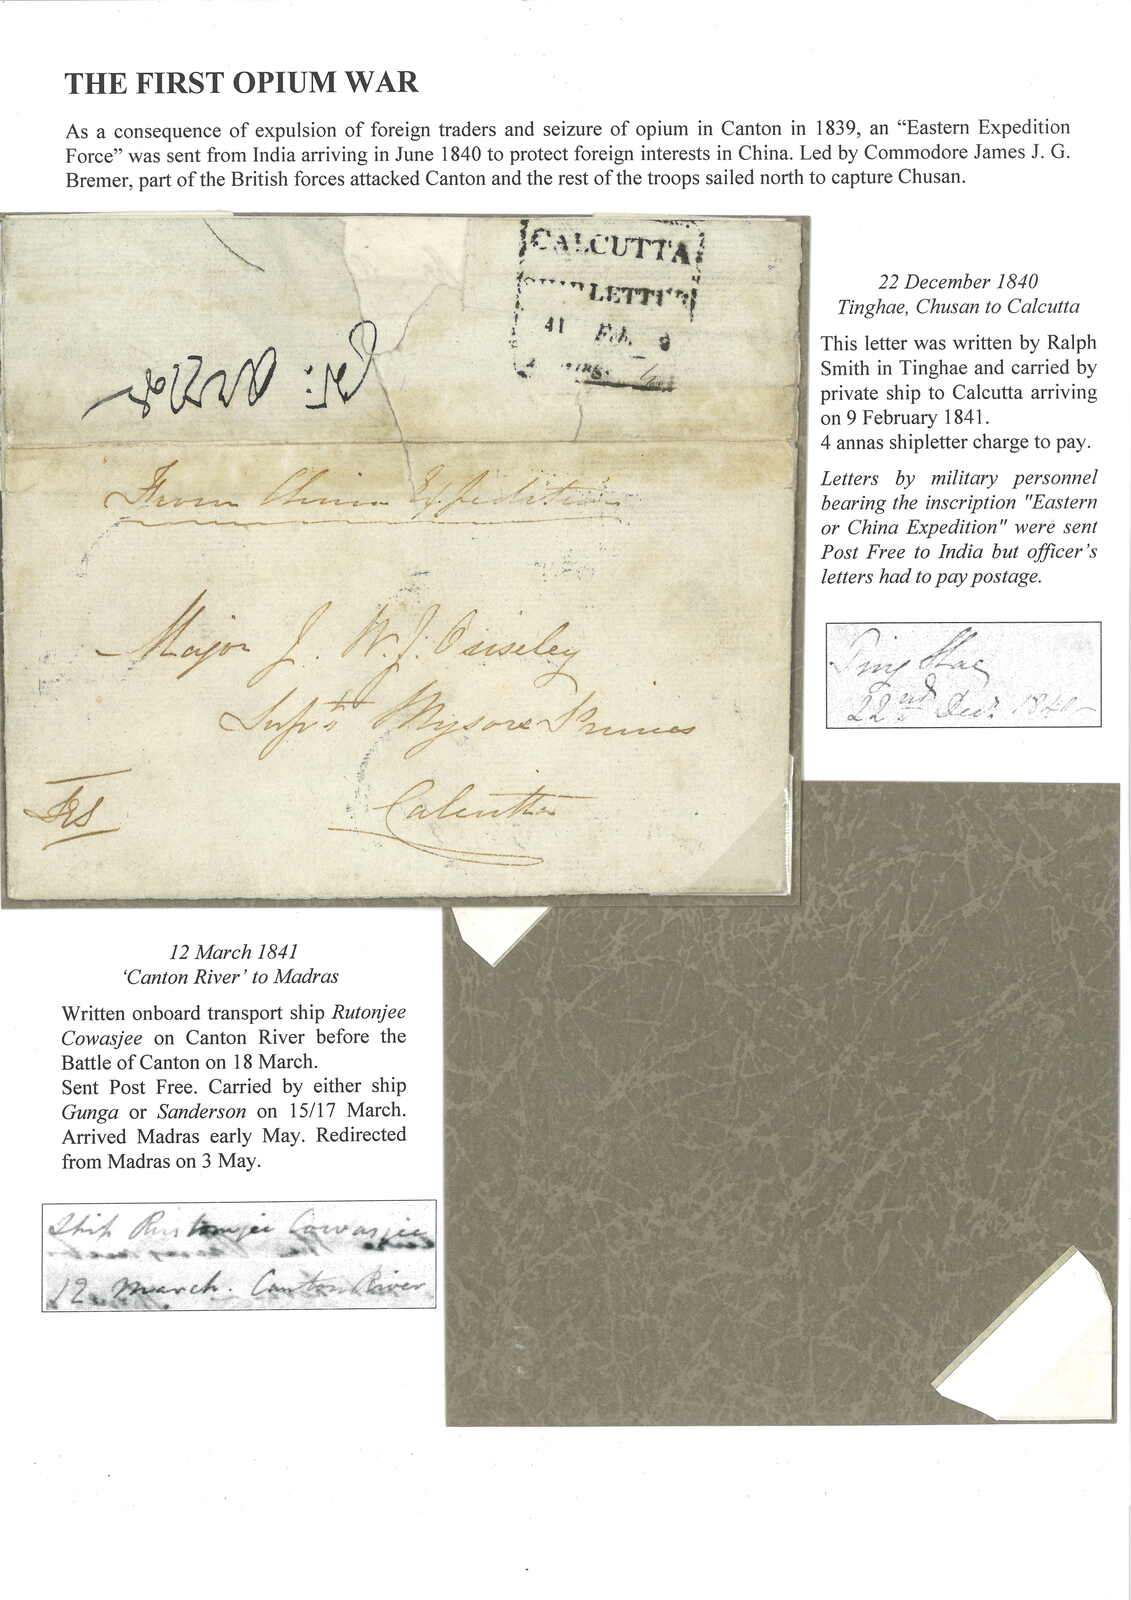 THE FIRST OPIUM WAR
As a consequence of expulsion of foreign traders and seizure of opium in Canton in 1839, an “Eastern Expedition
Force” was sent from India arriving in June 1840 to protect foreign interests in China. Led by Commodore James J. G.
Bremer, part of the British forces attacked Canton and the rest of the troops sailed north to capture Chusan.
CALCUTTA
SHIP LETTER
41 Feb. 9
From China Expedition
Major J. W. J. Ouseley
Supt. Mysore Princes
Calcutta
22 December 1840
Tinghae, Chusan to Calcutta
This letter was written by Ralph
Smith in Tinghae and carried by
private ship to Calcutta arriving
on 9 February 1841.
4 annas shipletter charge to pay.
Letters by military personnel
bearing the inscription "Eastern
or China Expedition" were sent
Post Free to India but officer’s
letters had to pay postage.
Ting Hae
22nd Decr. 1840
12 March 1841
‘Canton River’ to Madras
Written onboard transport ship Rutonjee
Cowasjee on Canton River before the
Battle of Canton on 18 March.
Sent Post Free. Carried by either ship
Gunga or Sanderson on 15/17 March.
Arrived Madras early May. Redirected
from Madras on 3 May.
Ship Rustomjee Cowasjee
12 March. Canton River